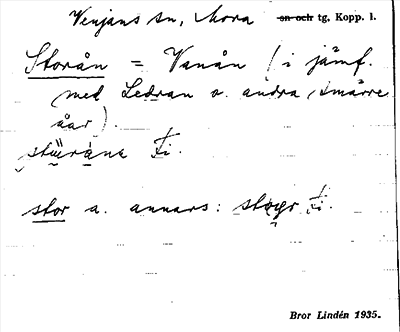 Venjans sn, Mora sn och tg. Kopp. l.
Storån = Vanån (i jämf.
med Ledran o. andra smärre
åar).
fi.
stor a. annars: fi.
Bror Lindén 1935.